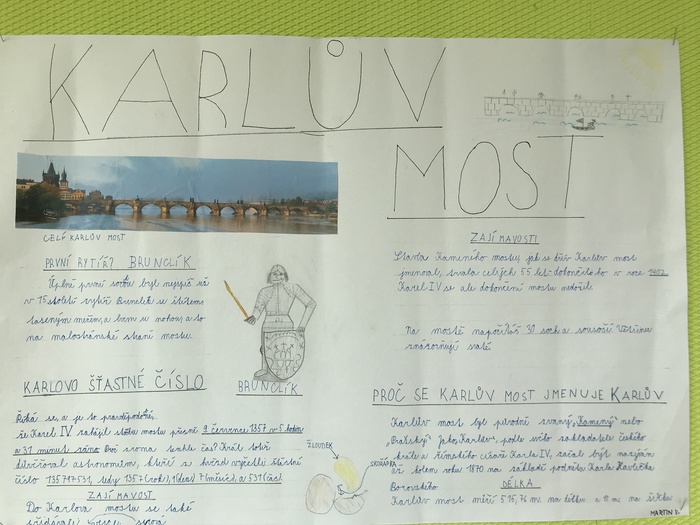 KARLŮV
MOST
CELÝ KARLŮV MOST
PRVNÍ RYTÍŘ? BRUNCLÍK
Úplně první sochu byl nejspíš už
v 15 století rytíř Bruncvík se štítem
taseným mečem, a lvem u nohou, a to
na malostránské straně mostu.
BRUNCLÍK
KARLOVO ŠŤASTNÉ ČÍSLO
Říká se, a je to pravděpodobné,
že Karel IV. zahájil stavbu mostu přesně 9 července 1357 v 5 hodin
a 31 minut ráno. Proč zrovna tenhle čas? Král totiž
důvěřoval astronomům, kteří z hvězd vyčetli šťastné
číslo 135797531, tedy 1357 (rok), 9 (den) 7 (měsíc), a 531 (čas)
ZAJÍMAVOST
Do Karlova mostu se také
přidávali
ŽLOUDEK
SKOŘÁPKA
ZAJÍMAVOSTI
Stavba Kamenného mostu, jak se dřív Karlův most
jmenoval, trvala celých 55 let. dokončili ho v roce 1402.
Karel IV se ale dokončení mostu nedožil.
Na mostě napočítáš 30 soch a sousoší. Většinou
znázorňují svaté.
PROČ SE KARLŮV MOST JMENUJE KARLŮV
Karlův most byl původně zvaný „Kamenný" nebo
„Pražský" Jako „Karlův", podle svého zakladatele českého
krále a římského císaře Karla IV, začal být nazýván
až kolem roku 1870 na základě podnětu Karla Havlíčka
Borovského
DÉLKA
Karlův most měří 515,76 m. na délku a m. na šířku
MARTIN